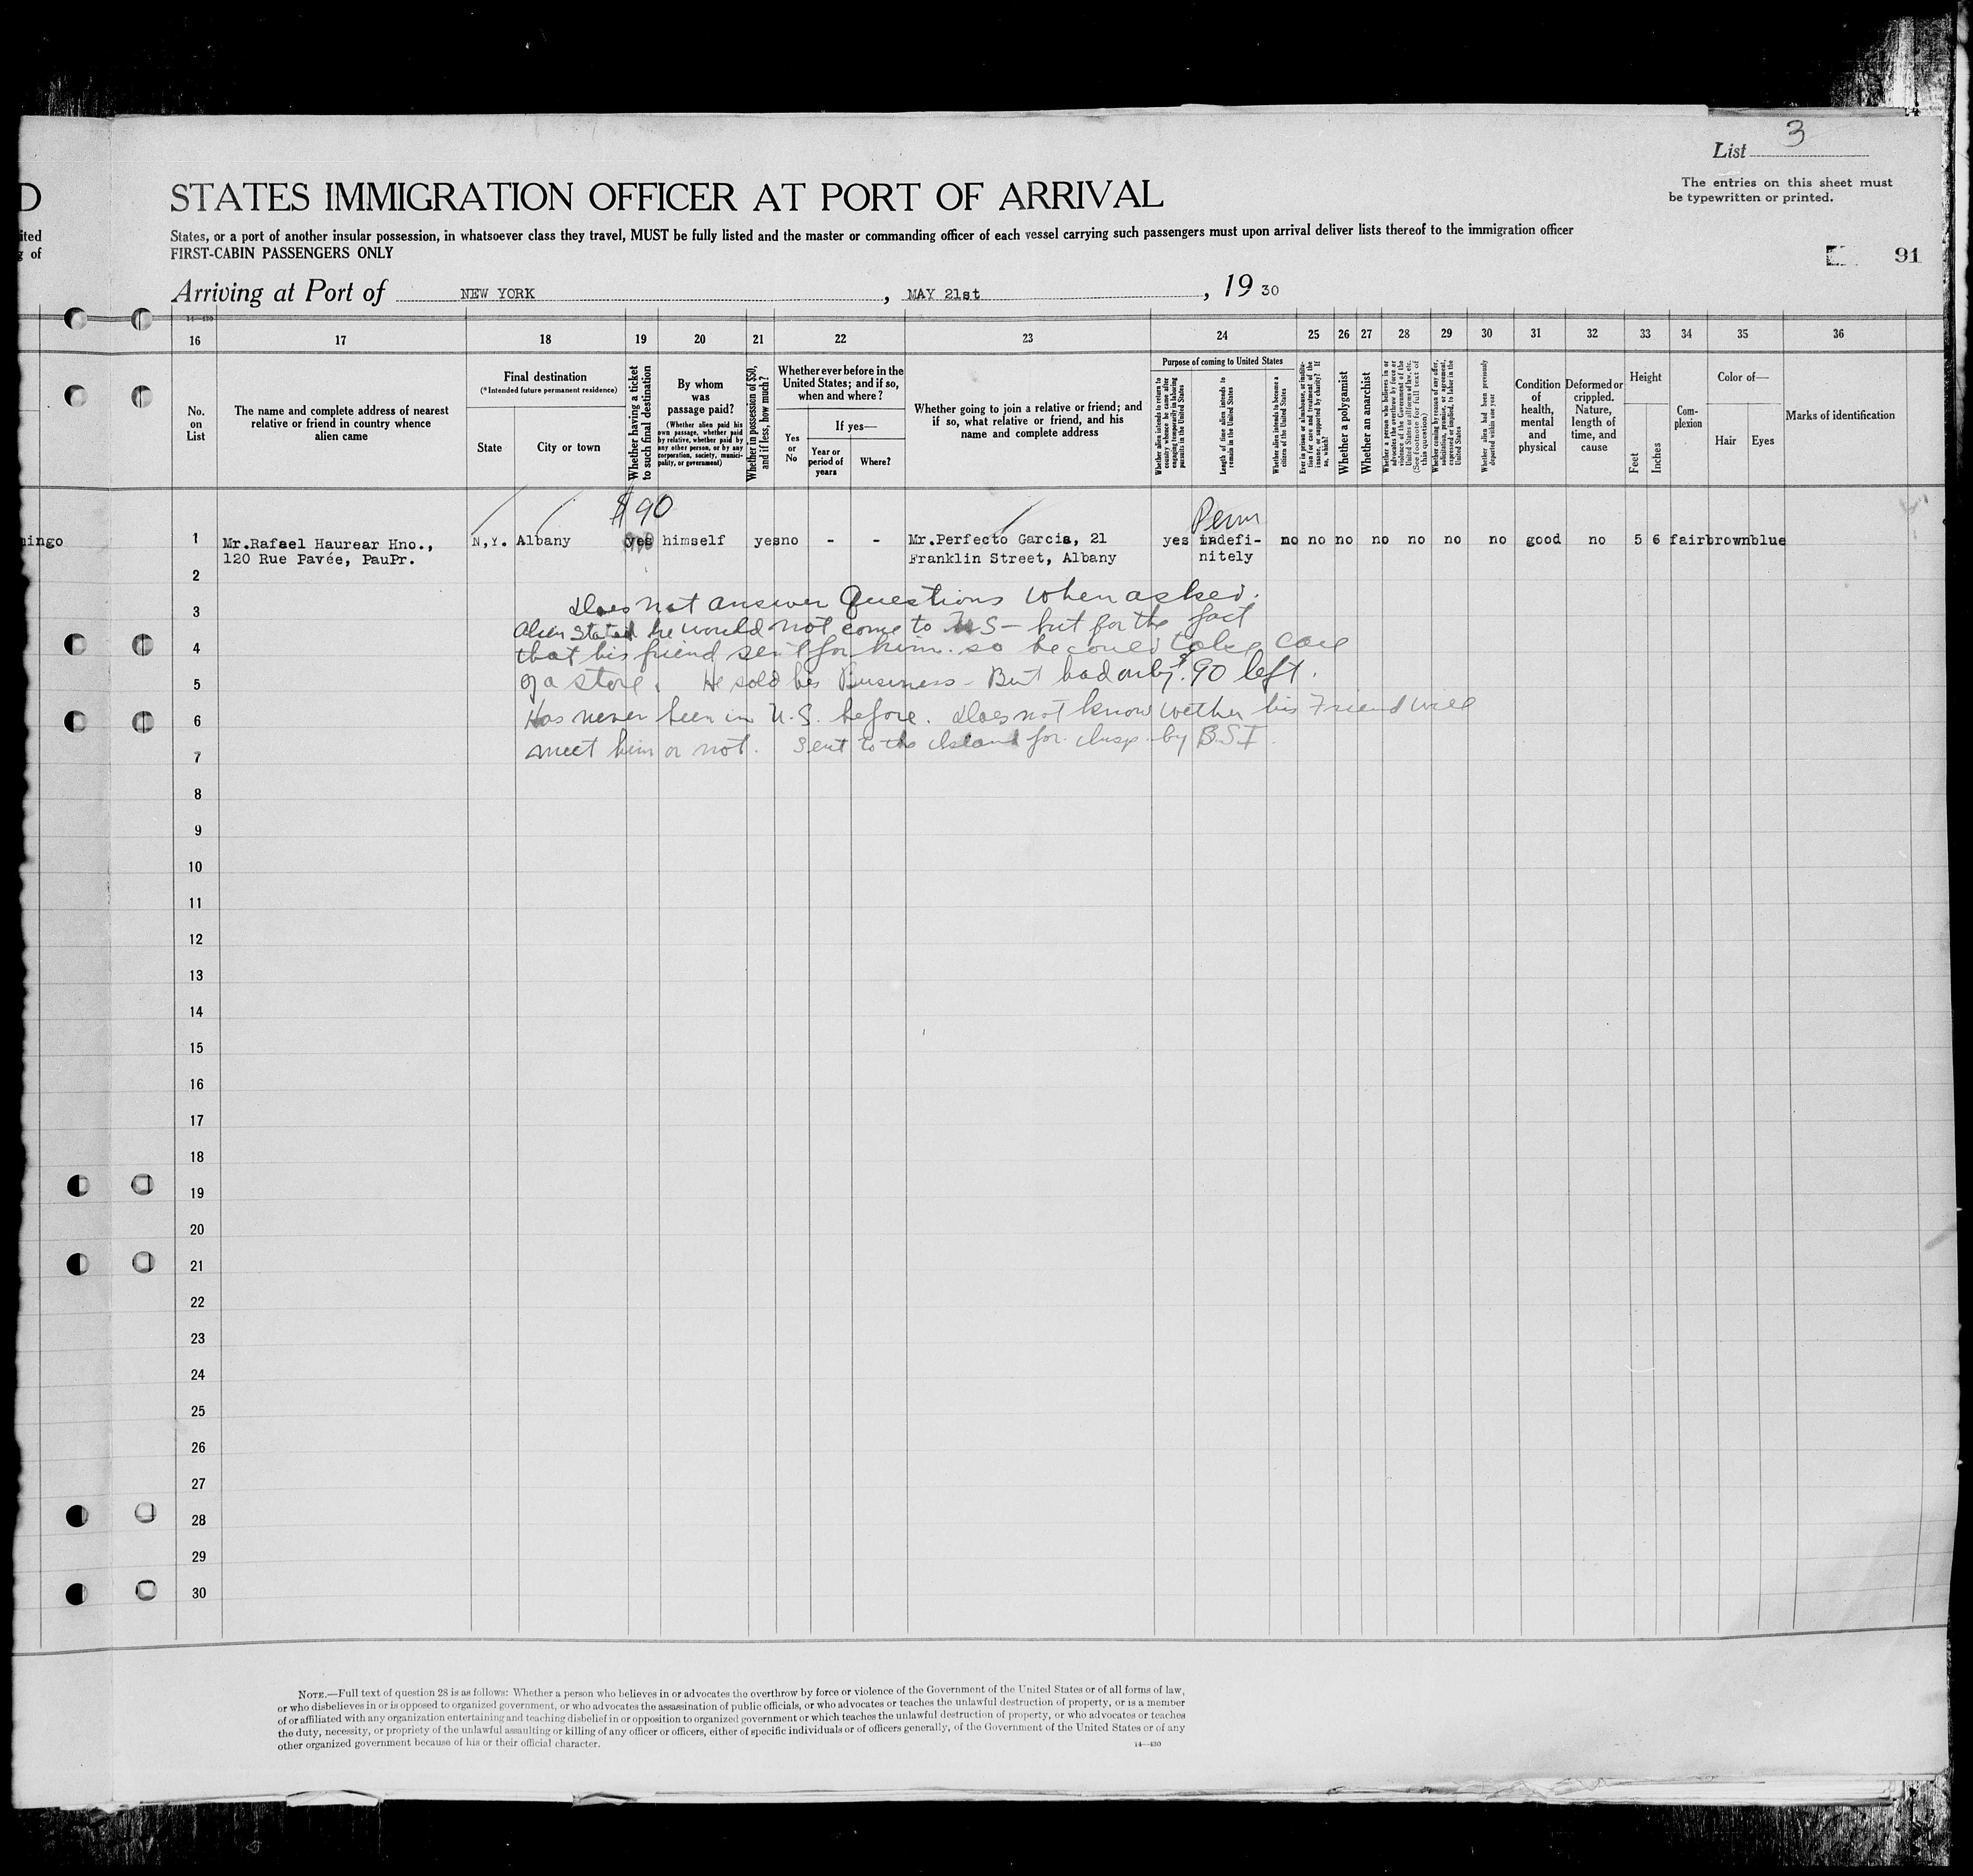 3
List
The entries on this sheet must
be typewritten or printed.
D
STATES IMMIGRATION OFFICER AT PORT OF ARRIVAL
ited
States, or a port of another insular possession, in whatsoever class they travel, MUST be fully listed and the master or commanding officer of each vessel carrying such passengers must upon arrival deliver lists thereof to the immigration officer
g of
FIRST-CABIN PASSENGERS ONLY
91
Arriving at Port of NEW YORK, MAY 21st, 19 30
14—430
16 17 18 19 20 21 22 23 24 25 26 27 28 29 30 31 32 33 34 35 36
No.
on
List
The name and complete address of nearest
relative or friend in country whence
alien came
Final destination
(*Intended future permanent residence)
State
City or town
Whether having a ticket
to such final destination
By whom
was
passage paid?
(Whether alien paid his
own passage, whether paid
by relative, whether paid by
any other person, or by any
corporation, society, munici-
pality, or government)
Whether in possession of $50,
and if less, how much?
Whether ever before in the
United States; and if so,
when and where?
Yes
or
No
If yes—
Year or
period of
years
Where?
Whether going to join a relative or friend; and
if so, what relative or friend, and his
name and complete address
Purpose of coming to United States
Whether alien intends to return to
country whence he came after
engaging temporarily in laboring
pursuits in the United States
Length of time alien intends to
remain in the United States
Whether alien intends to become a
citizen of the United States
Ever in prison or almshouse, or institu-
tion for care and treatment of the
insane, or supported by charity? If
so, which?
Whether a polygamist
Whether an anarchist
Whether a person who believes in or
advocates the overthrow by force or
violence of the Government of the
United States or all forms of law, etc.
(See footnote for full text of
this question)
Whether coming by reason of any offer,
solicitation, promise, or agreement,
expressed or implied, to labor in the
United States
Whether alien had been previously
deported within one year
Condition
of
health,
mental
and
physical
Deformed or
crippled.
Nature,
length of
time, and
cause
Height
Feet
Inches
Com-
plexion
Color of—
Hair
Eyes
Marks of identification
$90
Perm
mingo 1 Mr.Rafael Haurear Hno., N,Y. Albany yes himself yes no - - Mr.Perfecto Garcia, 21 yes indefi- no no no no no no no good no 5 6 fair brown blue
120 Rue Pavée, PauPr. Franklin Street, Albany nitely
2
Does not answer Questions when asked.
3
Alien Stated he would not come to U S - but for the fact
4
that his friend sent for him. so he could take care
5
of a store. He sold his Business - But had only $90 left.
6
Has never been in U.S. before. Does not know wether his Friend will
7
meet him or not. Sent to the Island for insp. by B.S.I
8
9
10
11
12
13
14
15
16
17
18
19
20
21
22
23
24
25
26
27
28
29
30
NOTE.—Full text of question 28 is as follows: Whether a person who believes in or advocates the overthrow by force or violence of the Government of the United States or of all forms of law,
or who disbelieves in or is opposed to organized government, or who advocates the assassination of public officials, or who advocates or teaches the unlawful destruction of property, or is a member
of or affiliated with any organization entertaining and teaching disbelief in or opposition to organized government or which teaches the unlawful destruction of property, or who advocates or teaches
the duty, necessity, or propriety of the unlawful assaulting or killing of any officer or officers, either of specific individuals or of officers generally, of the Government of the United States or of any
other organized government because of his or their official character.
14—430